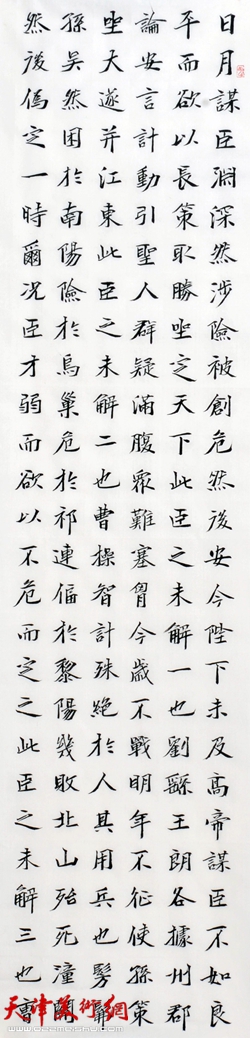 日月謀臣淵深然涉險被創危然後安今陛下未及高帝謀臣不如良
平而欲以長策取勝坐定天下此臣之未解一也劉繇王朗各據州郡
論安言計動引聖人群疑滿腹眾難塞胷今歲不戰明年不征使孫策
坐大遂并江東此臣之未解二也曹操智計殊絕於人其用兵也髣髴
孫吳然困於南陽險於烏巢危於祁連偪於黎陽幾敗北山殆死潼關
然後偽定一時爾況臣才弱而欲以不危而定之此臣之未解三也曹
天津美術網